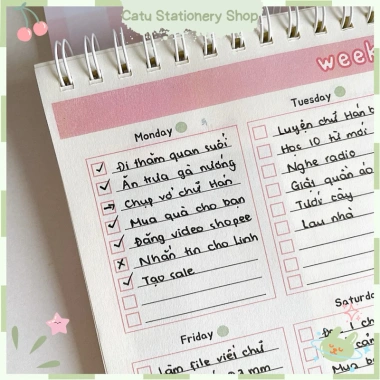 Catu Stationery Shop
week
Monday
Đi thăm quan suối
Ăn trưa gà nướng
Chụp vở chữ Hán
Mua quà cho bạn
Đăng video shopee
Nhắn tin cho Linh
Tạo sale
Tuesday
Luyện chữ Hán b
Học 10 từ mới
Nghe radio
Giặt quần áo
Tưới cây
Lau nhà
Friday
Làm file viết chữ
mm
Saturda
Mua b